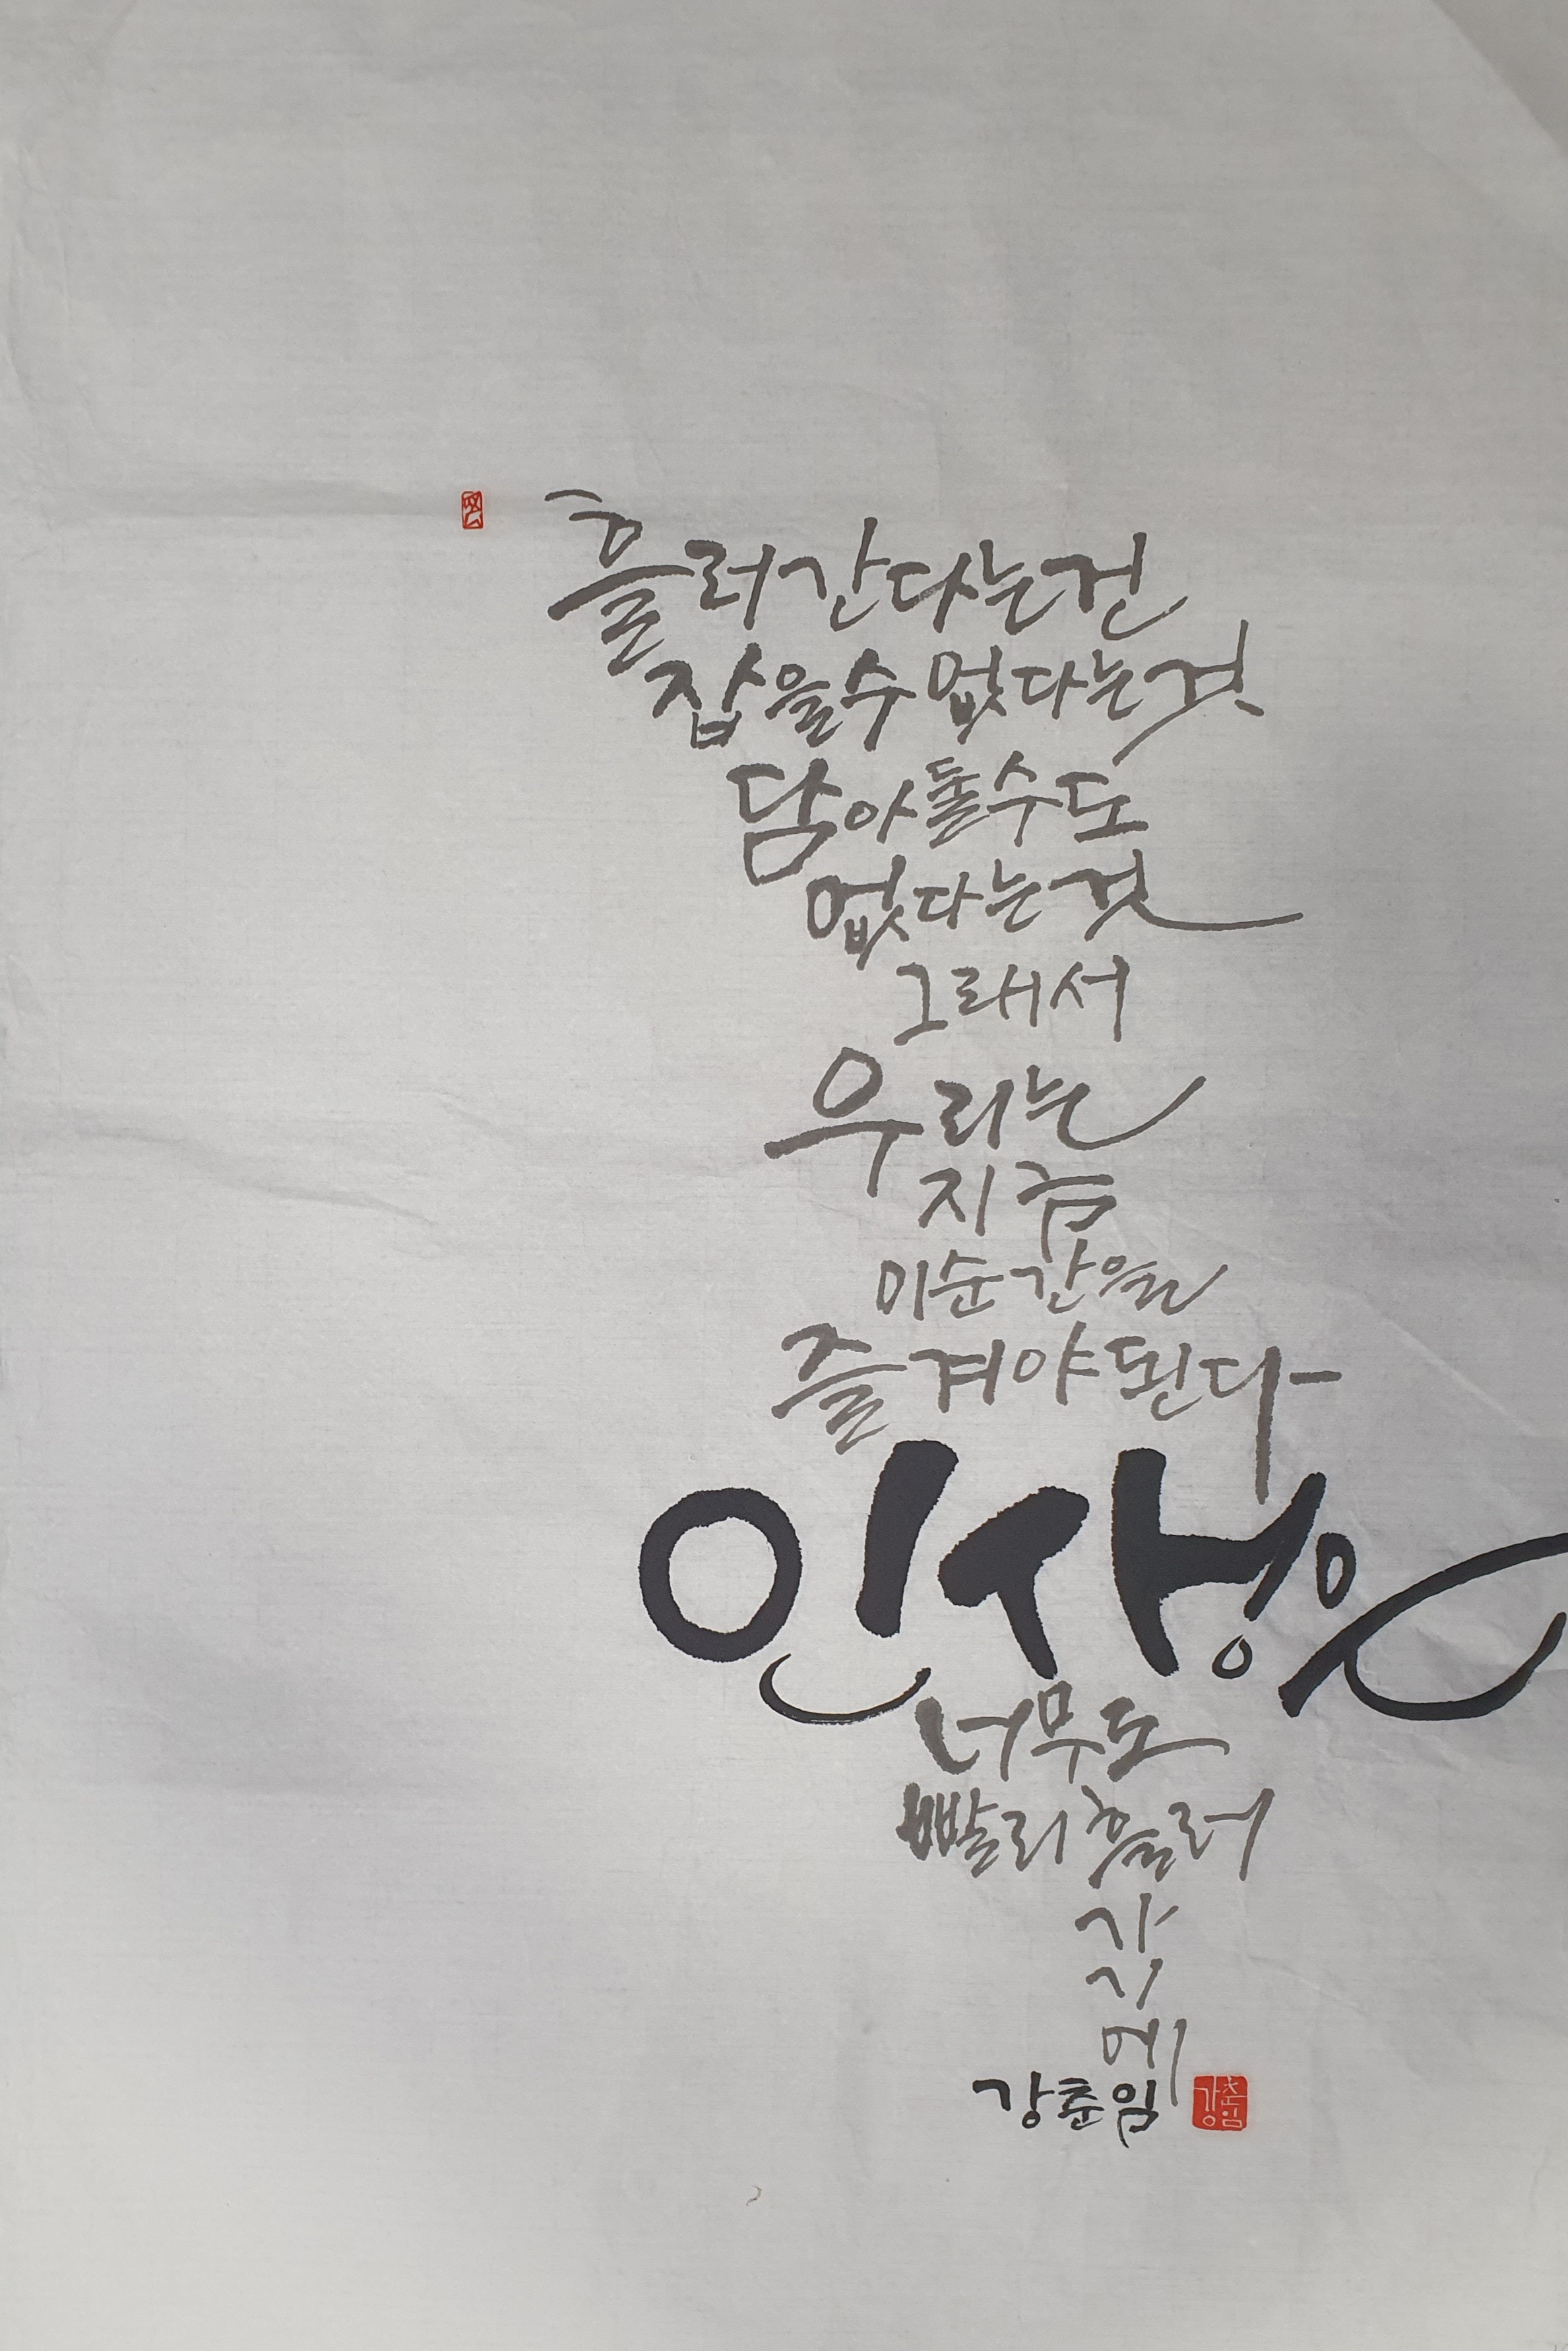 흘러간다는건
잡을수없다는것
담아둘수도
없다는것
그래서
우리는
지금
이순간을
즐겨야된다
인생은
너무도
빨리흘러
가
기
에
강춘임
강춘임